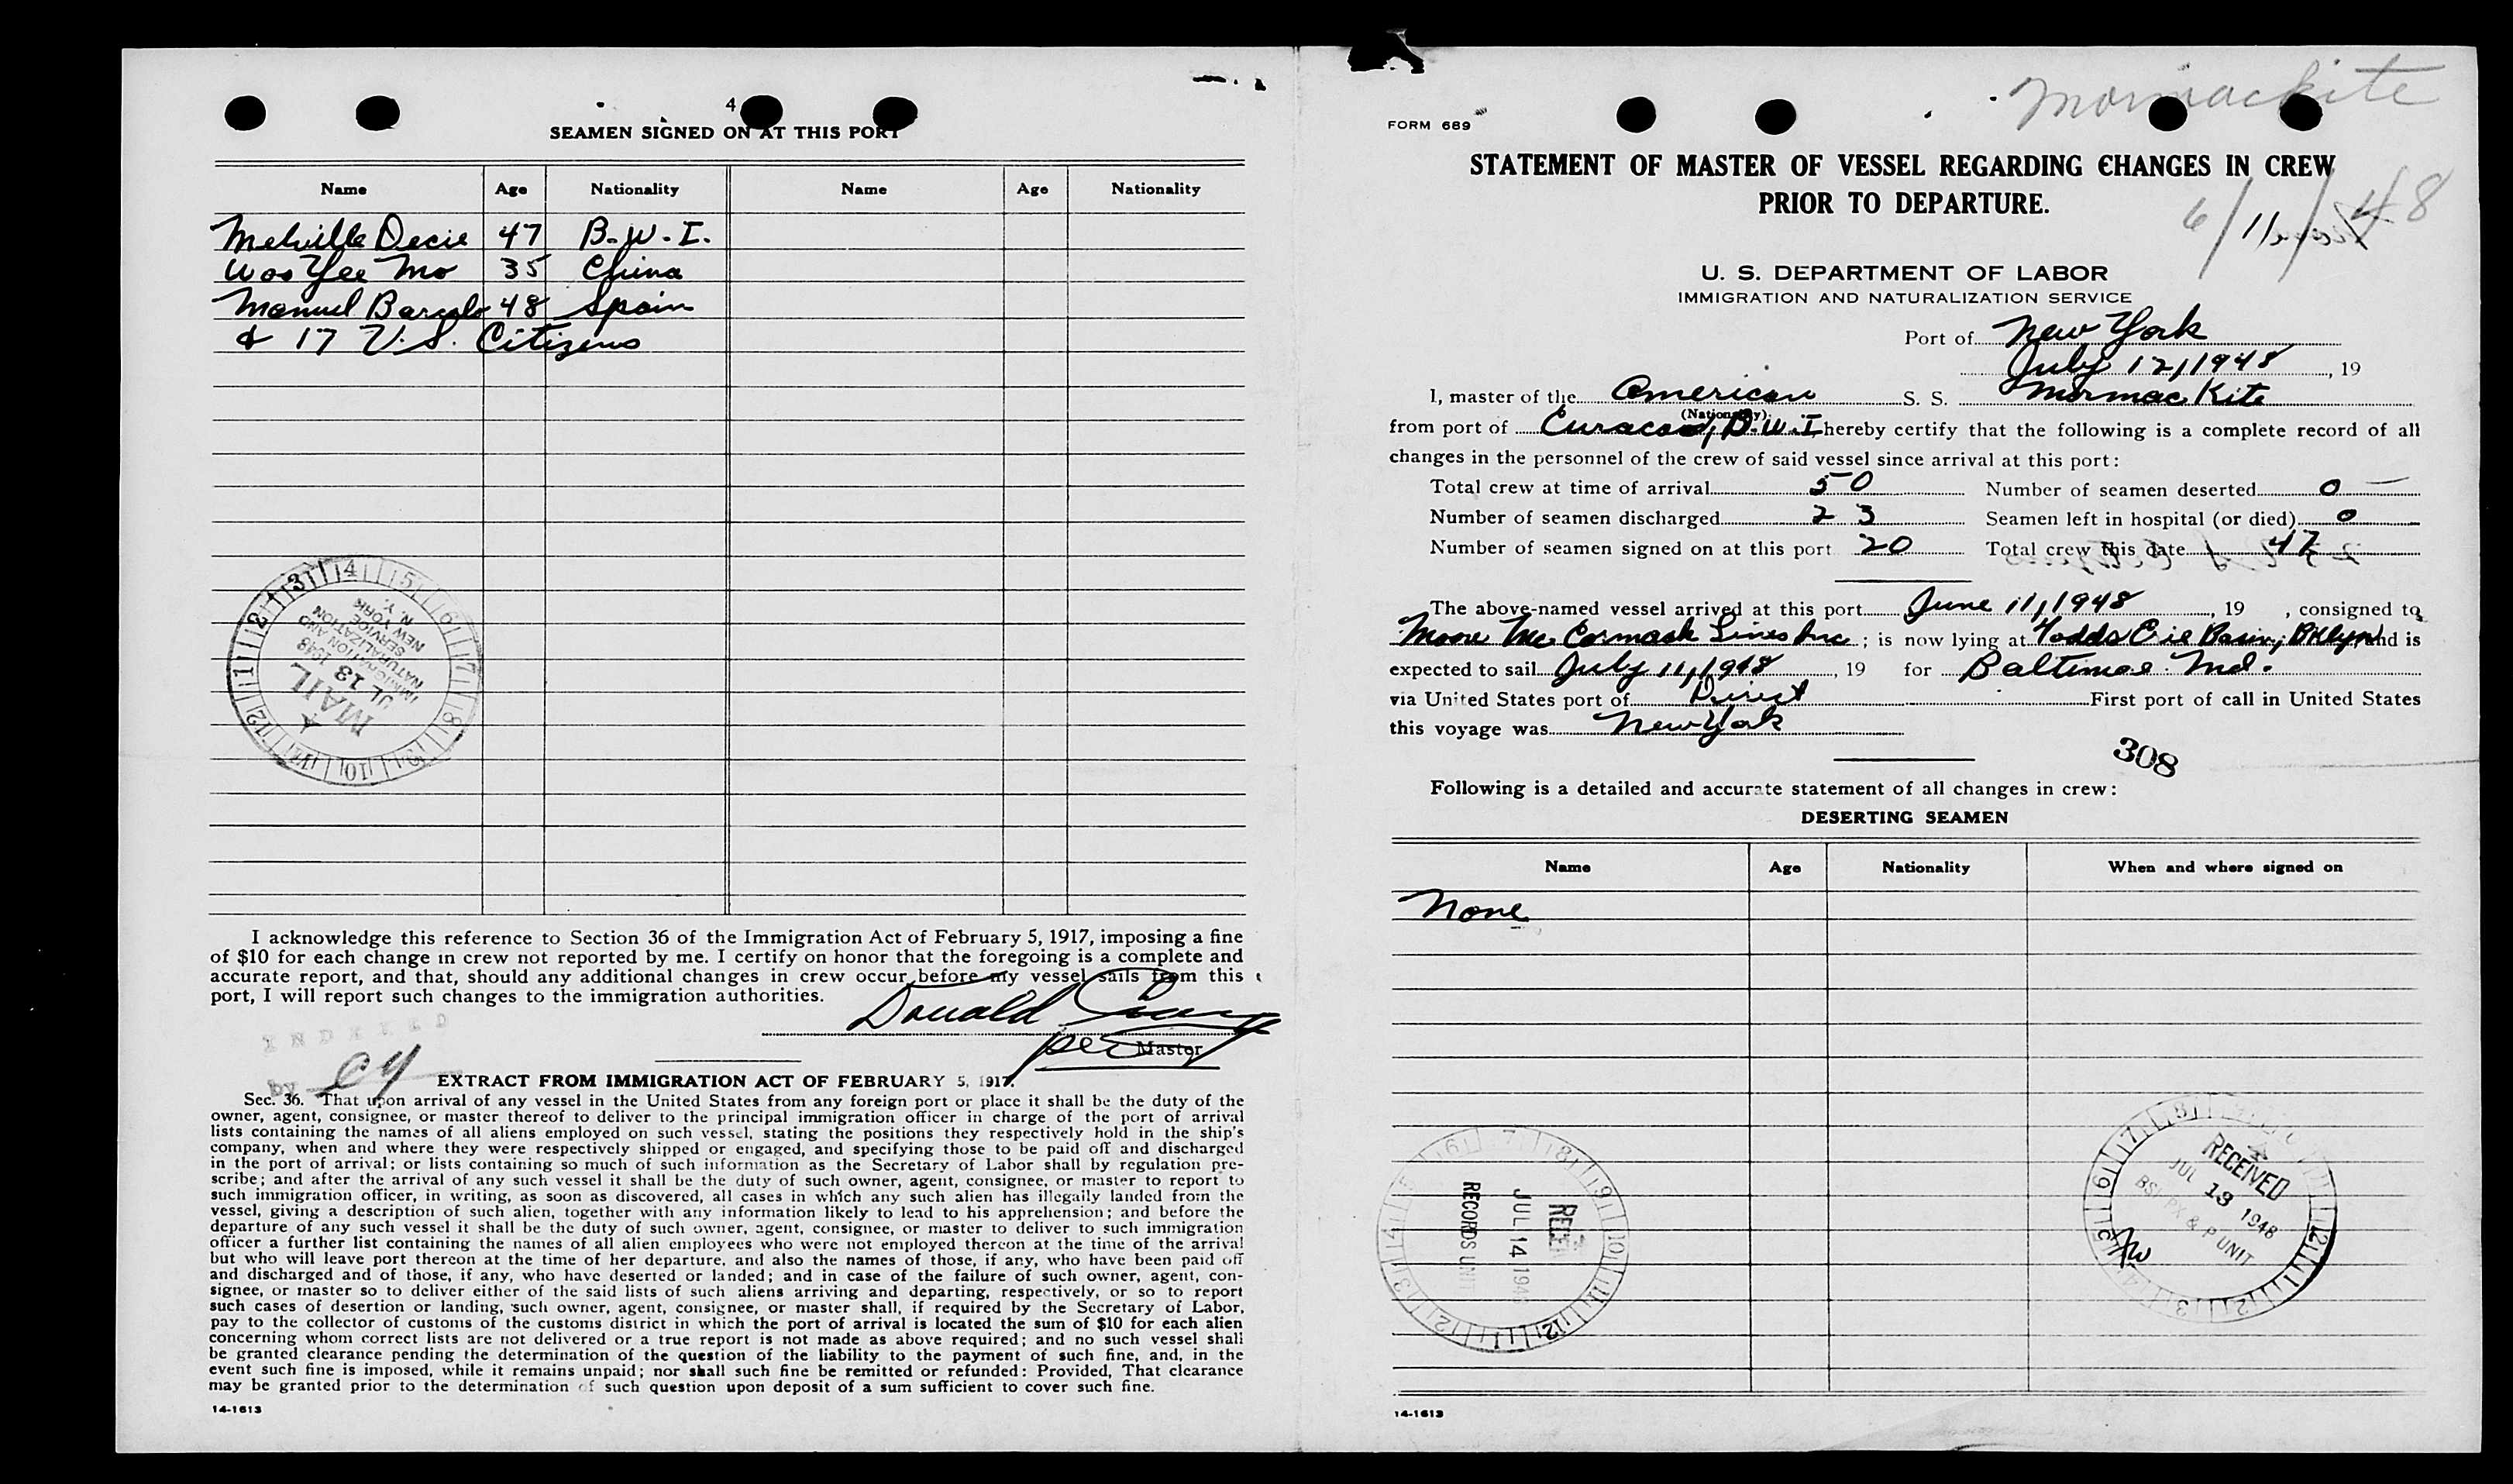 4
SEAMEN SIGNED ON AT THIS PORT
Name Age Nationality Name Age Nationality
Melville Decie 47 B.W.I.
Woo Yee Mo 35 China
Manuel 48 Spain
& 17 U.S. Citizens
MAIL
JL 13 1948
IMMIGRATION AND
NATURALIZATION
SERVICE
NEW YORK
N. Y.
I acknowledge this reference to Section 36 of the Immigration Act of February 5, 1917, imposing a fine
of $10 for each change in crew not reported by me. I certify on honor that the foregoing is a complete and
accurate report, and that, should any additional changes in crew occur before my vessel sails from this
port, I will report such changes to the immigration authorities.
Donald
per
Master
INDEXED
by
EXTRACT FROM IMMIGRATION ACT OF FEBRUARY 5, 1917.
Sec. 36. That upon arrival of any vessel in the United States from any foreign port or place it shall be the duty of the
owner, agent, consignee, or master thereof to deliver to the principal immigration officer in charge of the port of arrival
lists containing the names of all aliens employed on such vessel, stating the positions they respectively hold in the ship's
company, when and where they were respectively shipped or engaged, and specifying those to be paid off and discharged
in the port of arrival; or lists containing so much of such information as the Secretary of Labor shall by regulation pre-
scribe; and after the arrival of any such vessel it shall be the duty of such owner, agent, consignee, or master to report to
such immigration officer, in writing, as soon as discovered, all cases in which any such alien has illegally landed from the
vessel, giving a description of such alien, together with any information likely to lead to his apprehension; and before the
departure of any such vessel it shall be the duty of such owner, agent, consignee, or master to deliver to such immigration
officer a further list containing the names of all alien employees who were not employed thereon at the time of the arrival
but who will leave port thereon at the time of her departure, and also the names of those, if any, who have been paid off
and discharged and of those, if any, who have deserted or landed; and in case of the failure of such owner, agent, con-
signee, or master so to deliver either of the said lists of such aliens arriving and departing, respectively, or so to report
such cases of desertion or landing, such owner, agent, consignee, or master shall, if required by the Secretary of Labor,
pay to the collector of customs of the customs district in which the port of arrival is located the sum of $10 for each alien
concerning whom correct lists are not delivered or a true report is not made as above required; and no such vessel shall
be granted clearance pending the determination of the question of the liability to the payment of such fine, and, in the
event such fine is imposed, while it remains unpaid; nor shall such fine be remitted or refunded: Provided, That clearance
may be granted prior to the determination of such question upon deposit of a sum sufficient to cover such fine.
14-1613
Mormackite
FORM 689
STATEMENT OF MASTER OF VESSEL REGARDING CHANGES IN CREW
PRIOR TO DEPARTURE.
6/11/48
U. S. DEPARTMENT OF LABOR
IMMIGRATION AND NATURALIZATION SERVICE
Port of New York
July 12, 1948, 19
I, master of the American S. S. Mormac Kite
(Nationality)
from port of Curacao, D.W.I hereby certify that the following is a complete record of all
changes in the personnel of the crew of said vessel since arrival at this port:
Total crew at time of arrival 50 Number of seamen deserted 0
Number of seamen discharged 23 Seamen left in hospital (or died) 0
Number of seamen signed on at this port 20 Total crew this date 47
The above-named vessel arrived at this port June 11, 1948, 19 , consigned to
Moore Mc Cormack Lines Inc; is now lying at Todds Erie Basin, Bklyn and is
expected to sail July 11, 1948, 19 for Baltimore Md.
via United States port of Direct First port of call in United States
this voyage was New York
308
Following is a detailed and accurate statement of all changes in crew:
DESERTING SEAMEN
Name Age Nationality When and where signed on
None
RECEIVED
JUL 14 1948
RECORDS UNIT
RECEIVED
JUL 13 1948
& P UNIT
14-1613